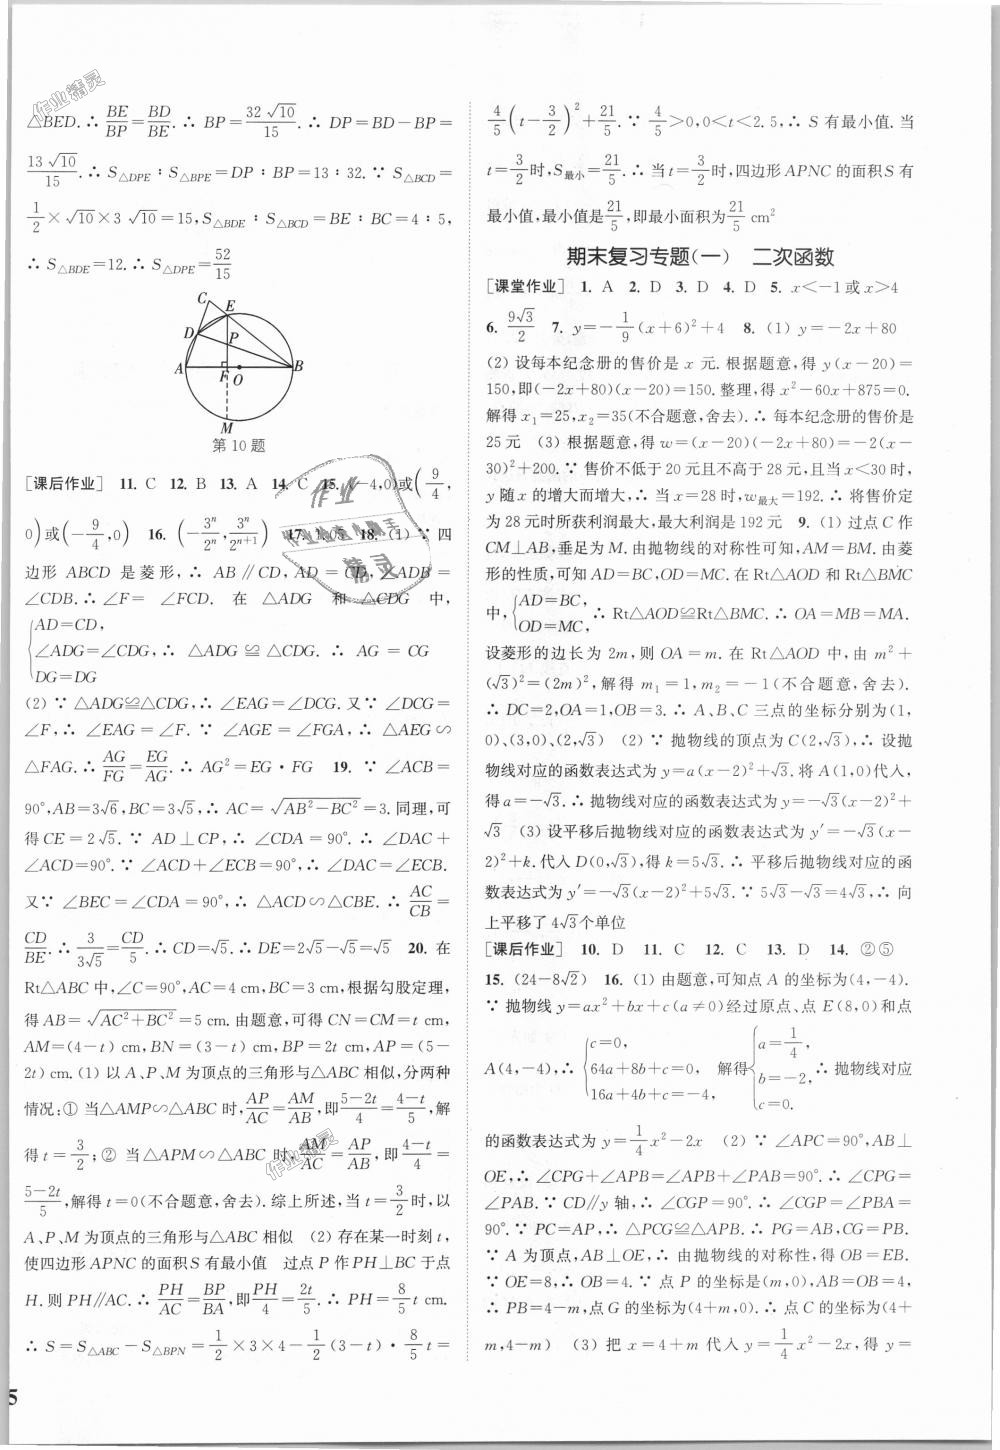 △BED.∴ BE/BP=BD/BE.∴ BP=32√10/15.∴ DP=BD-BP=
13√10/15.∴ S△DPE∶S△BPE=DP∶BP=13∶32.∵ S△BCD=
1/2×√10×3√10=15,S△BDE∶S△BCD=BE∶BC=4∶5,
∴ S△BDE=12.∴ S△DPE=52/15
C E D P A F O B M
第10题
[课后作业] 11. C 12. B 13. A 14. C 15. (-4,0)或(9/4,
0)或(-9/4,0) 16. (-3ⁿ/2ⁿ,3ⁿ/2ⁿ⁺¹) 17. 18. (1) ∵ 四
边形 ABCD 是菱形,∴ AB∥CD,AD=CD,∠ADB=
∠CDB.∴∠F=∠FCD. 在 △ADG 和 △CDG 中,
{AD=CD,
∠ADG=∠CDG,∴ △ADG ≌ △CDG. ∴ AG = CG
DG=DG
(2) ∵ △ADG≌△CDG,∴ ∠EAG=∠DCG.又∵ ∠DCG=
∠F,∴ ∠EAG=∠F.∵ ∠AGE=∠FGA,∴ △AEG∽
△FAG.∴ AG/FG=EG/AG.∴ AG²=EG·FG 19. ∵ ∠ACB=
90°,AB=3√6,BC=3√5,∴ AC=√(AB²-BC²)=3.同理,可
得CE=2√5.∵ AD⊥CP,∴ ∠CDA=90°.∴ ∠DAC+
∠ACD=90°.∵ ∠ACD+∠ECB=90°,∴ ∠DAC=∠ECB.
又∵ ∠BEC=∠CDA=90°,∴ △ACD∽△CBE.∴ AC/CB=
CD/BE.∴ 3/3√5=CD/5.∴ CD=√5.∴ DE=2√5-√5=√5 20. 在
Rt△ABC中,∠C=90°,AC=4 cm,BC=3 cm,根据勾股定理,
得AB=√(AC²+BC²)=5 cm.由题意,可得CN=CM=t cm,
AM=(4-t) cm,BN=(3-t) cm,BP=2t cm,AP=(5-
2t) cm.(1) 以A、P、M为顶点的三角形与△ABC相似,分两种
情况:① 当△AMP∽△ABC时,AP/AC=AM/AB,即(5-2t)/4=(4-t)/5,解
得t=3/2;② 当△APM∽△ABC时,AM/AC=AP/AB,即(4-t)/4=
(5-2t)/5,解得t=0(不合题意,舍去).综上所述,当t=3/2时,以
A、P、M为顶点的三角形与△ABC相似 (2) 存在某一时刻t,
使四边形APNC的面积S有最小值 过点P作PH⊥BC于点
H.则PH∥AC.∴ PH/AC=BP/BA,即PH/4=2t/5.∴ PH=8/5 t cm.
∴ S=S△ABC-S△BPN=1/2×3×4-1/2(3-t)·8/5 t=
5
4/5(t-3/2)²+21/5.∵ 4/5>0,0<t<2.5,∴ S有最小值.当
t=3/2时,S最小=21/5.∴ 当t=3/2时,四边形APNC的面积S有
最小值,最小值是21/5,即最小面积为21/5 cm²
期末复习专题(一) 二次函数
[课堂作业] 1. A 2. D 3. D 4. D 5. x<-1或x>4
6. 9√3/2 7. y=-1/9(x+6)²+4 8. (1) y=-2x+80
(2) 设每本纪念册的售价是 x 元.根据题意,得 y(x-20)=
150,即(-2x+80)(x-20)=150.整理,得x²-60x+875=0.
解得x₁=25,x₂=35(不合题意,舍去).∴ 每本纪念册的售价是
25元 (3) 根据题意,得w=(x-20)(-2x+80)=-2(x-
30)²+200.∵ 售价不低于20元且不高于28元,当x<30时,
y随x的增大而增大,∴ 当x=28时,w最大=192.∴ 将售价定
为28元时所获利润最大,最大利润是192元 9. (1) 过点C作
CM⊥AB,垂足为M.由抛物线的对称性可知,AM=BM.由菱
形的性质,可知AD=BC,OD=MC.在Rt△AOD和Rt△BMC
中,{AD=BC,
OD=MC,∴ Rt△AOD≌Rt△BMC.∴ OA=MB=MA.
设菱形的边长为2m,则OA=m.在Rt△AOD中,由m²+
(√3)²=(2m)²,解得m₁=1,m₂=-1(不合题意,舍去).
∴ DC=2,OA=1,OB=3.∴ A、B、C三点的坐标分别为(1,
0)、(3,0)、(2,√3) (2) ∵ 抛物线的顶点为C(2,√3),∴ 设抛
物线对应的函数表达式为y=a(x-2)²+√3.将A(1,0)代入,
得a=-√3.∴ 抛物线对应的函数表达式为y=-√3(x-2)²+
√3 (3) 设平移后抛物线对应的函数表达式为y′=-√3(x-
2)²+k.代入D(0,√3),得k=5√3.∴ 平移后抛物线对应的函
数表达式为y′=-√3(x-2)²+5√3.∵ 5√3-√3=4√3,∴ 向
上平移了4√3个单位
[课后作业] 10. D 11. C 12. C 13. D 14. ②⑤
15. (24-8√2) 16. (1) 由题意,可知点A的坐标为(4,-4).
∵ 抛物线y=ax²+bx+c(a≠0)经过原点、点E(8,0)和点
A(4,-4),∴ {c=0,
64a+8b+c=0,
16a+4b+c=-4, 解得{a=1/4,
b=-2,
c=0. ∴ 抛物线对应
的函数表达式为y=1/4x²-2x (2) ∵ ∠APC=90°,AB⊥
OE,∴ ∠CPG+∠APB=∠APB+∠PAB=90°.∴ ∠CPG=
∠PAB.∵ CD∥y轴,∴ ∠CGP=90°.∴ ∠CGP=∠PBA=
90°.∵ PC=AP,∴ △PCG≌△APB.∴ PG=AB,CG=PB.
∵ A为顶点,AB⊥OE,∴ 由抛物线的对称性,得OB=EB.
∵ OE=8,∴ OB=4.∵ 点P的坐标是(m,0),AB=OB=4,
∴ PB=4-m,点G的坐标为(4+m,0).∴ 点C的坐标为(4+
m,4-m) (3) 把x=4+m代入y=1/4x²-2x,得y=